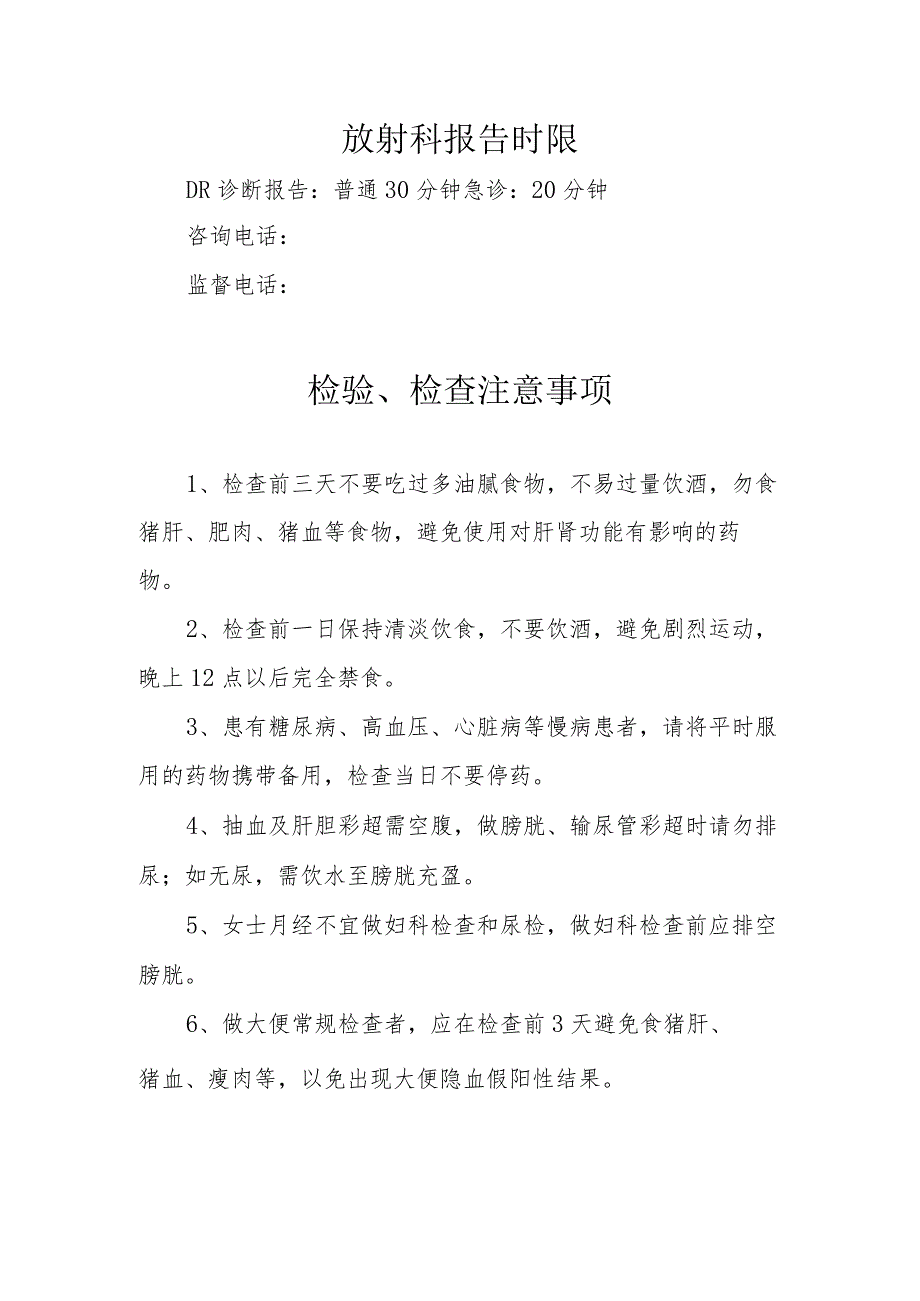 放射科报告时限
DR诊断报告：普通30分钟急诊：20分钟
咨询电话：
监督电话：
检验、检查注意事项
1、检查前三天不要吃过多油腻食物，不易过量饮酒，勿食
猪肝、肥肉、猪血等食物，避免使用对肝肾功能有影响的药
物。
2、检查前一日保持清淡饮食，不要饮酒，避免剧烈运动，
晚上12点以后完全禁食。
3、患有糖尿病、高血压、心脏病等慢病患者，请将平时服
用的药物携带备用，检查当日不要停药。
4、抽血及肝胆彩超需空腹，做膀胱、输尿管彩超时请勿排
尿；如无尿，需饮水至膀胱充盈。
5、女士月经不宜做妇科检查和尿检，做妇科检查前应排空
膀胱。
6、做大便常规检查者，应在检查前3天避免食猪肝、
猪血、瘦肉等，以免出现大便隐血假阳性结果。